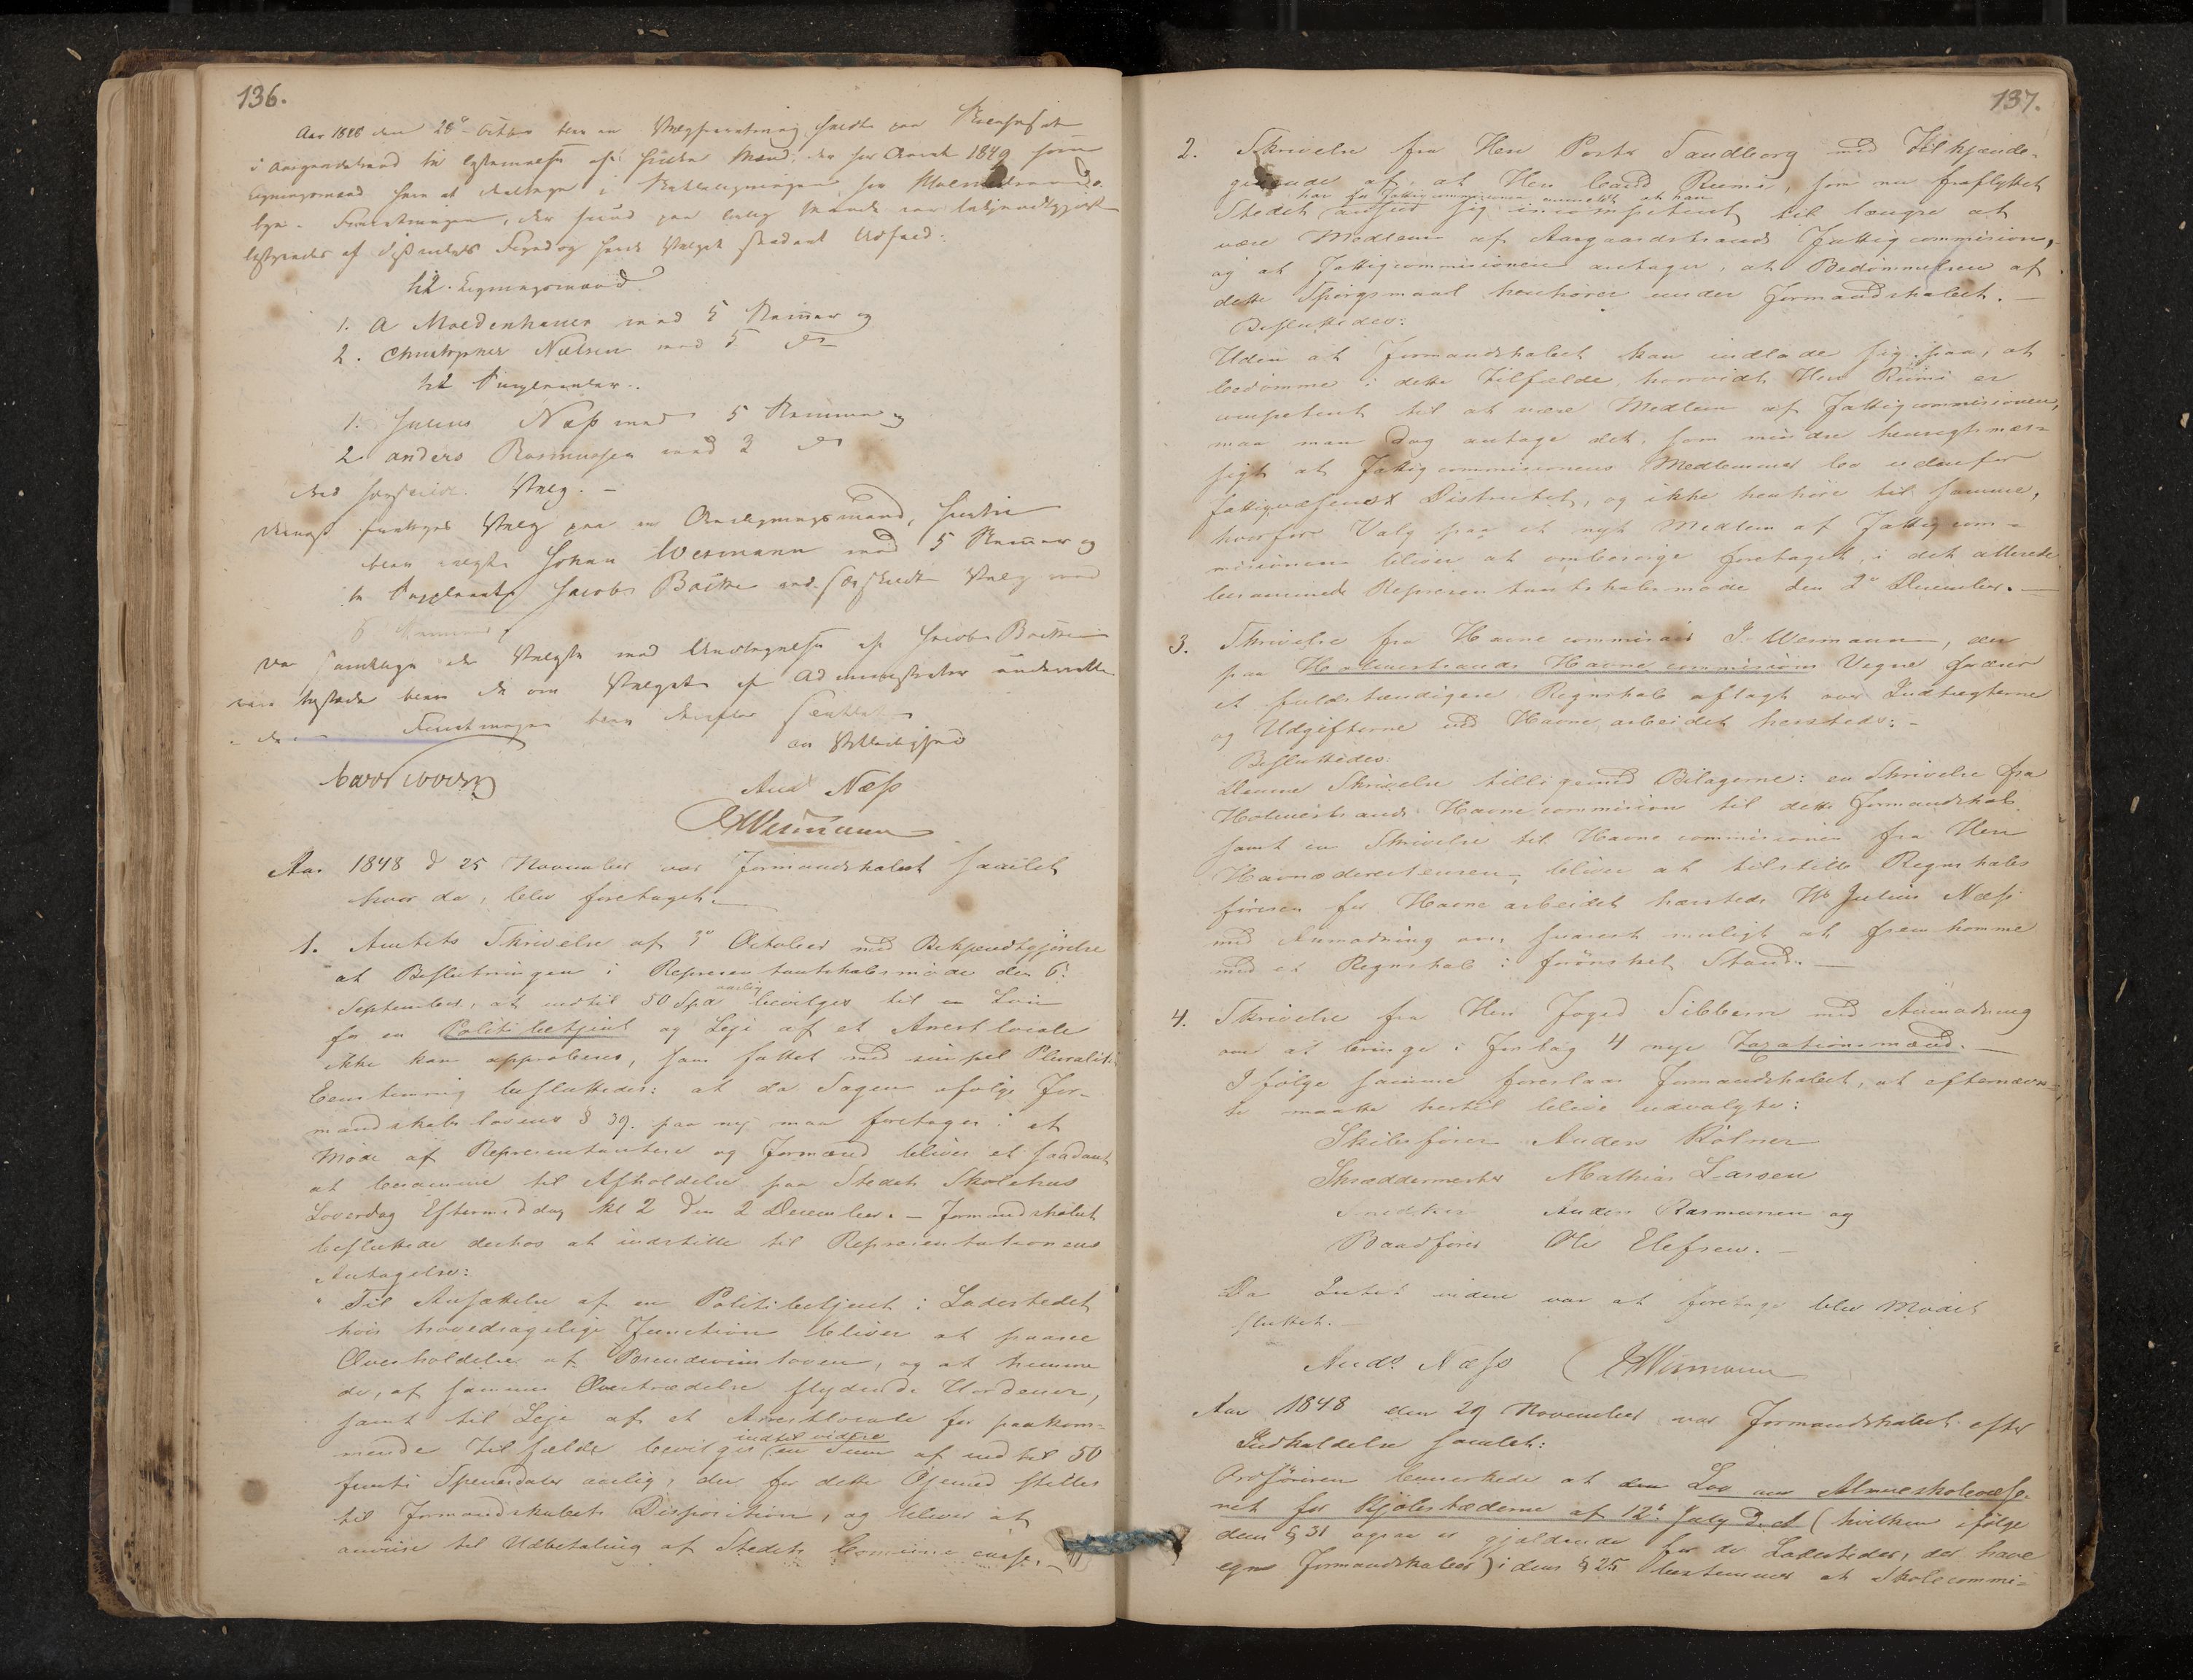 136.
Aar 1848 den 28de October blev en Valgforretning holdt paa
i Aargaardstrand til Mænd, der for Aaret 1849 som
Ligningsmænd have at deeltage i Skatteligningen for Holmestrands
Bye. Forretningen, der paa lovlig Maade var bekjendtgjort
bestyredes af Foged og havde Valget saadant Udfald:
til Ligningsmænd
1. A Moldenhauer med 5 Stemmer og
2. Christopher Nielsen med 5 do
til Suppleanter.
1. Julius Næss med 5 Stemmer og
2 Anders Rasmussen med 3 do
ved Valg. –
Valg paa en Ligningsmand, hvortil
blev valgt Johan Wermann med 5 Stemmer og
til Suppleant Jacob Bache ved Valg med
5 Stemmer
Da samtlige de Valgte med Undtagelse af Jacob Bache
vare tilstede blev de om Valget af Administrator underrettet
Forretningen blev derefter sluttet
Ands Næss
JWermann
Aar 1848 d 25 November var Formandskabet samlet
hvor da, blev foretaget.
1. Amtets Skrivelse af 3de October med Bekjendtgjörelse
at Beslutningen i Representantskabsmöde den 6te
September, at indtil 50 Spd aarlig bevilges til en Lön
for en Politibetjent og Leje af et Arrestlocale
ikke kan approberes, som fattet med simpel Pluralitet
Eenstemmig besluttedes: at da Sagen ifölge For-
mandskabslovens § 39. paa ny maa foretages i et
Möde af Representanter og Formænd bliver et saadant
at beramme til Afholdelse paa Stedets Skolehus
Loverdag Eftermiddag Kl 2 den 2 December. – Formandskabet
besluttede derhos at indstille til Representationens
Antagelse:
"Til Ansættelse af en Politibetjent i Ladestedet
hvis hovedsagelige Function bliver at paasee
Overholdelse af Brændevinsloven, og at hemme
de, af sammes Overtrædelse flydende Uordener,
samt til Leje af et Arrestlocale for paakom-
mende Tilfælde bevilges indtil videre en Sum af indtil 50
femti Speciedaler aarlig, der for dette Öjemed stilles
til Formandskabets Disposition, og bliver at
anvise til Udbetaling af Stedets Communecasse. –
137.
2. Skrivelse fra Herr Pastor Sandberg med Tilkjende-
givende af, at Herr Cand Reimi, som nu fraflyttet
Stedet har for Fattigcommissionen anmeldt at han anseer sig incompetent til længre at
være Medlem af Aargaardstrands Fattigcommission,
og at Fattigcommissionen antager, at Bedömmelsen af
dette Spörgsmaal henhörer under Formandskabet. –
Besluttedes:
Uden at Formandskabet kan indlade sig paa, at
bedömme i dette Tilfælde, hvorvidt Herr Reimi er
competent til at være Medlem af Fattigcommissionen,
maa man dog antage det, som mindre hensigtsmæs-
sigt at Fattigcommissionens Medlemmer bo udenfor
Fattigvæsenets Districtet, og ikke henhöre til samme,
hvorfor Valg paa et nyt Medlem af Fattigcom-
missionen bliver at ombesörge foretaget i det allerede
berammede Representantskabsmöde den 2de December. –
3. Skrivelse fra Havnecommissair J. Wermann, der
paa Holmestrands Havnecommissions Vegne fordrer
et fuldstændigere Regnskab aflagt over Indtægterne
og Udgifterne ved Havnearbeidet hersteds: –
Besluttedes:
Denne Skrivelse tilligemed Bilagerne: en Skrivelse fra
Holmestrands Havnecommission til dette Formandskab
samt en Skrivelse til Havnecommissionen fra Herr
Havnedirecteuren, bliver at tilstille Regnskabs
föreren for Havnearbeidet hersteds Hr Julius Næss
med Anmodning om, snarest muligt at fremkomme
med et Regnskab i forönsket Stand. –
4. Skrivelse fra Herr Foged Sibbern med Anmodning
om at bringe i Forslag 4 nye Taxationsmænd. –
I fölge samme foreslaaer Formandskabet, at efternævn-
te maatte hertil blive udvalgte:
Skibsförer Anders Rölner
Skræddermester Mathias Larsen
Snedker Anders Rasmussen og
Baadförer Ole Elefsen. –
Da Intet videre var at foretage blev Mödet
sluttet. –
Ands Næss JWermann
Aar 1848 den 29 November var Formandskabet efter
Indkaldelse samlet:
Ordföreren bemærkede at den Lov om Almueskolevæse-
net for Kjöbstæderne af 12te July d. A (hvilken ifölge
dens § 31 ogsaa er gjældende for de Ladesteder, der have
egne Formandskaber) i dens § 25 bestemmer at Skolecommi-